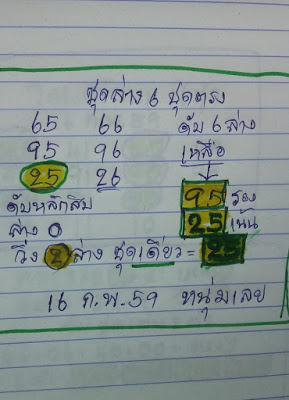 ชุดล่าง 6 ชุดตรง
65 66 ดับ 6 ล่าง
95 96 เหลือ
25 26 95 รอง
ดับหลักสิบ 25 เน้น
ล่าง 0
วิ่ง 2 ล่าง ชุดเดียว = 25
16 ก.พ. 59 หนุ่มเลย